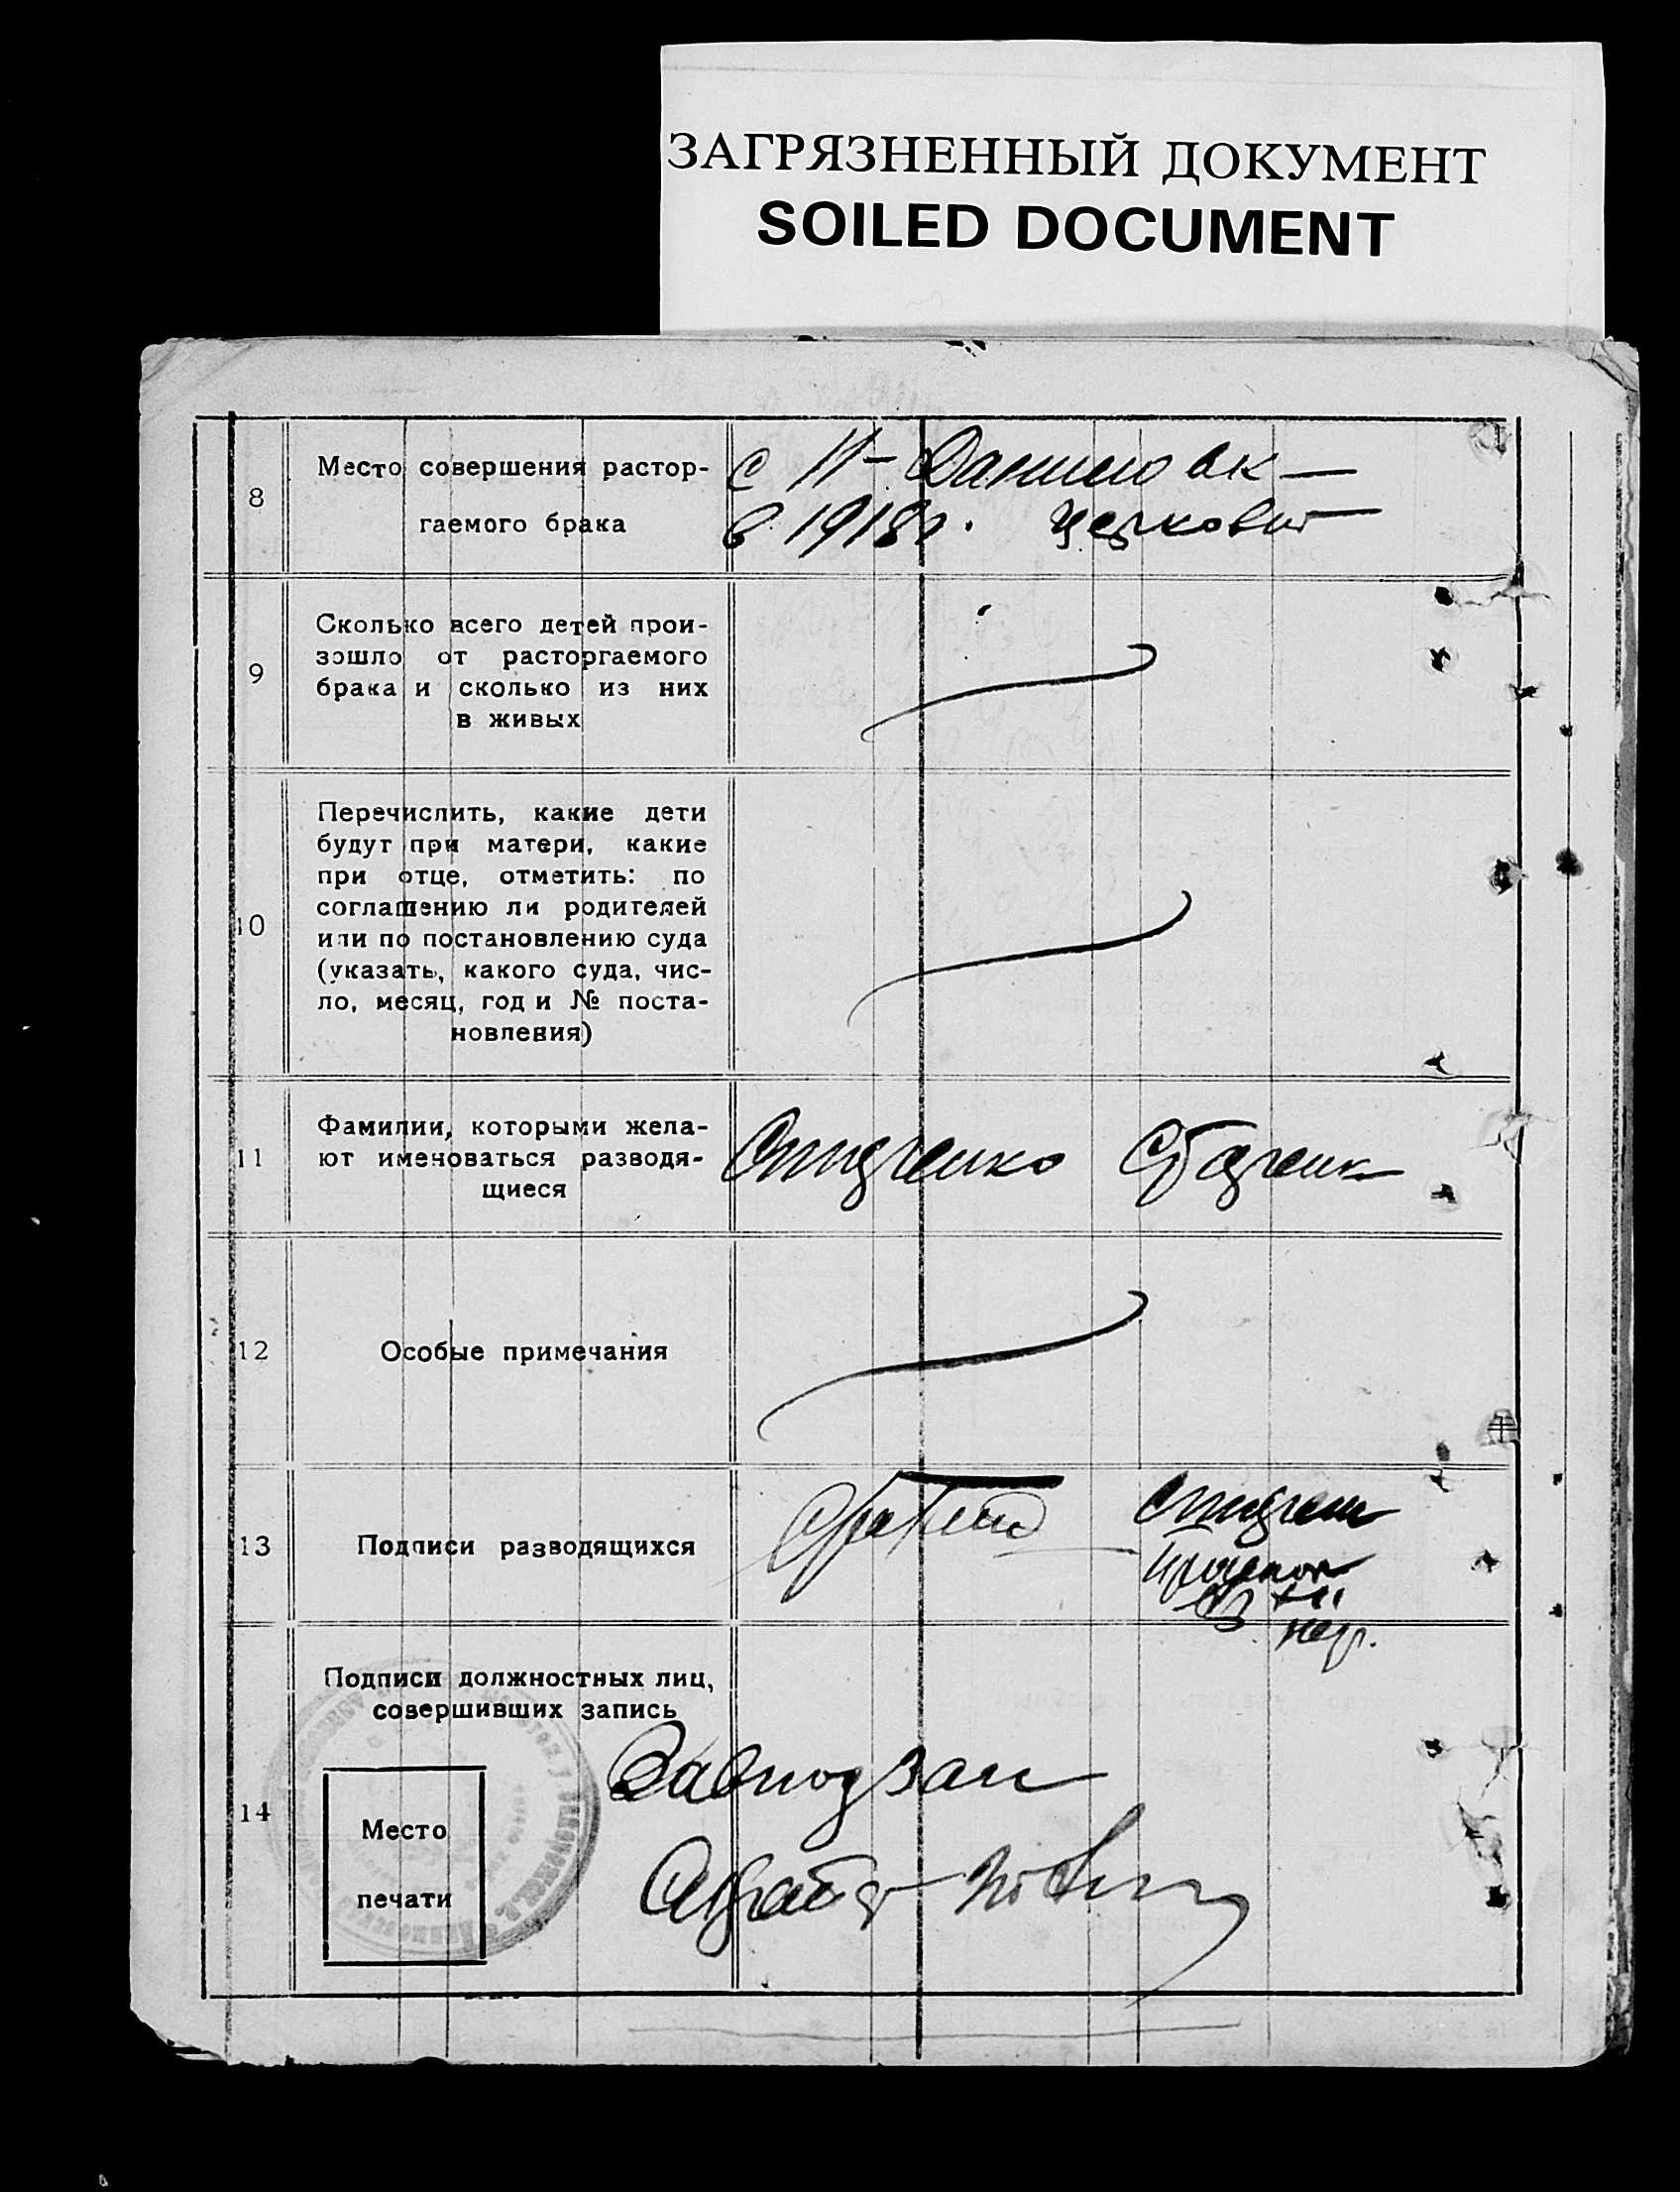 ЗАГРЯЗНЕННЫЙ ДОКУМЕНТ
SOILED DOCUMENT
8
Место совершения растор-
гаемого брака
с Н-Данилов
в 1918г. церковн
9
Сколько всего детей прои-
зошло от расторгаемого
брака и сколько из них
в живых
10
Перечислить, какие дети
будут при матери, какие
при отце, отметить: по
соглашению ли родителей
или по постановлению суда
(указать, какого суда, чис-
ло, месяц, год и № поста-
новления)
11
Фамилии, которыми жела-
ют именоваться разводя-
щиеся
12
Особые примечания
13
Подписи разводящихся
14
Подписи должностных лиц,
совершивших запись
Завподзаг
Место
печати